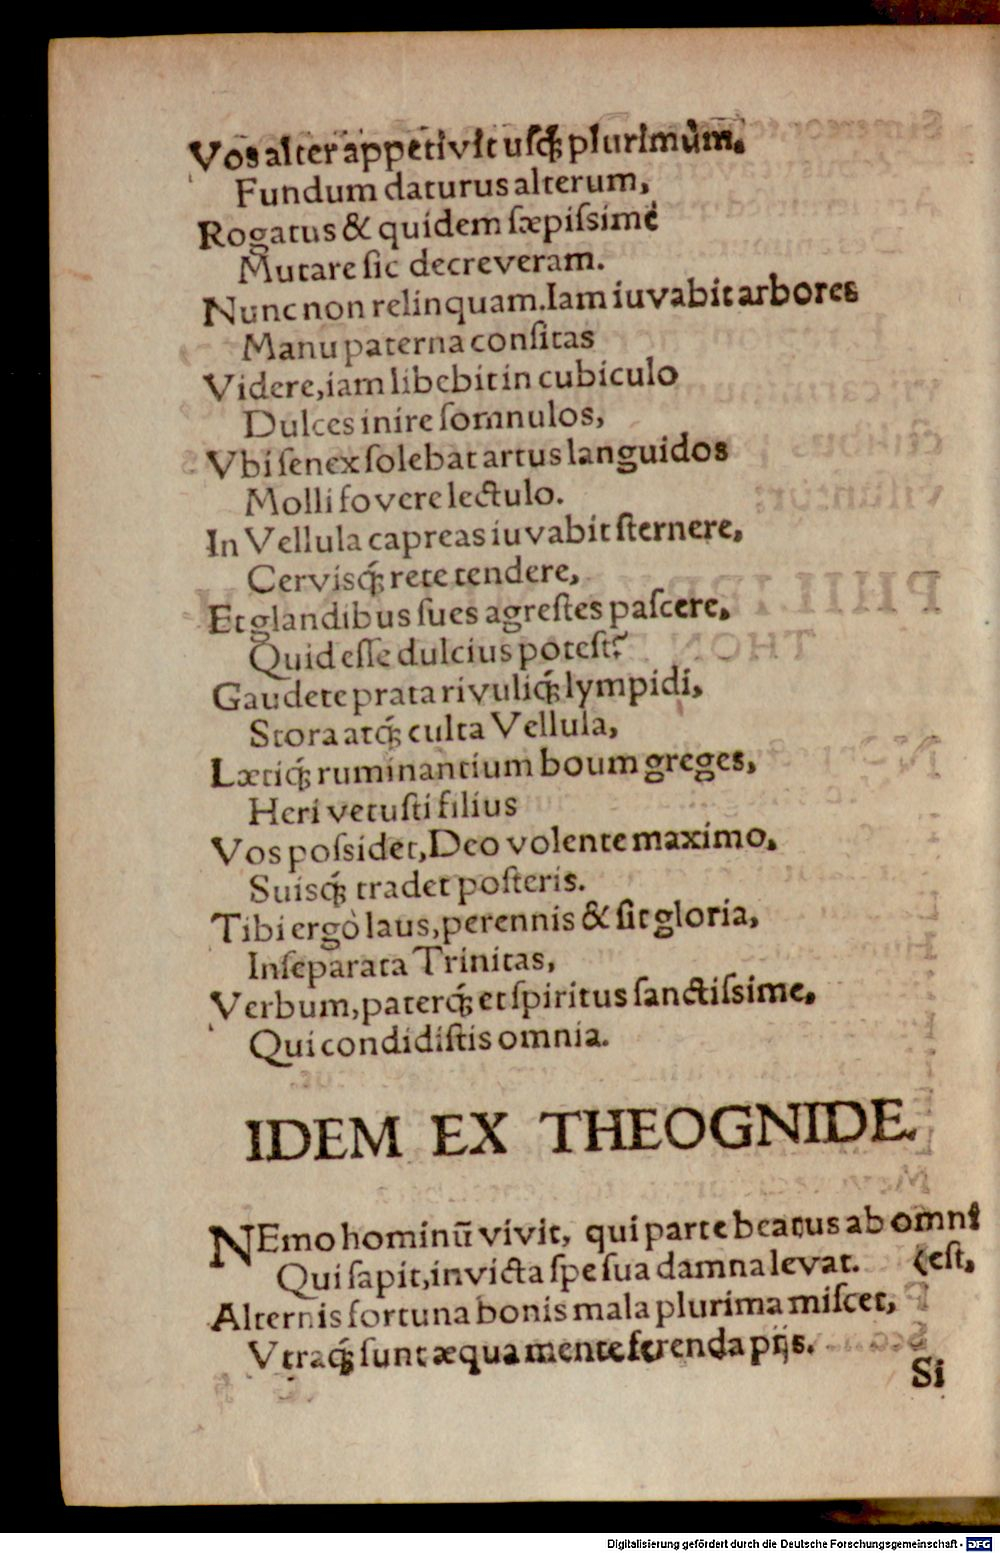 Vos alter appetivit uſqꝫ plurimùm,
Fundum daturus alterum,
Rogatus & quidem ſæpiſsimè
Mutare ſic decreveram.
Nunc non relinquam. Iam iuvabit arbores
Manu paterna conſitas
Videre, iam libebit in cubiculo
Dulces inire ſomnulos,
Vbi ſenex ſolebat artus languidos
Molli fovere lectulo.
In Vellula capreas iuvabit ſternere,
Cervisqꝫ́ rete tendere,
Et glandibus ſues agreſtes paſcere,
Quid eſſe dulcius poteſt?
Gaudete prata rivuliqꝫ́ lympidi,
Stora atqꝫ́ culta Vellula,
Lætiqꝫ́ ruminantium boum greges,
Heri vetuſti filius
Vos poſsidet, Deo volente maximo,
Suisqꝫ́ tradet poſteris.
Tibi ergò laus, perennis & ſit gloria,
Inſeparata Trinitas,
Verbum, paterqꝫ́ et ſpiritus ſanctiſsime,
Qui condidiſtis omnia.
IDEM EX THEOGNIDE.
NEmo hominũ vivit, qui parte beatus ab omni
Qui ſapit, invicta ſpe ſua damna levat. (eſt,
Alternis fortuna bonis mala plurima miſcet,
Vtraqꝫ́ ſunt æqua mente ferenda pijs.
Si
Digitalisierung gefördert durch die Deutsche Forschungsgemeinschaft - DFG